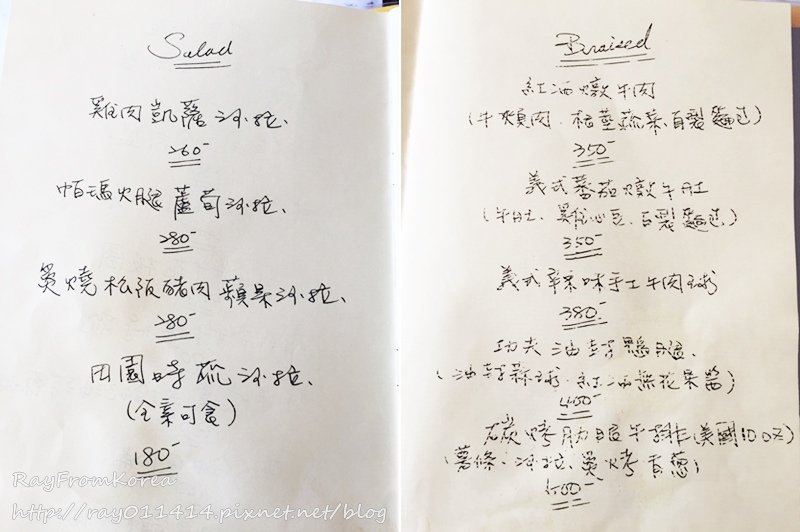 Salad
雞肉凱薩沙拉、
260-
帕瑪火腿蘆筍沙拉、
280-
炙燒松阪豬肉蘋果沙拉、
280-
田園時蔬沙拉、
(全素可食)
180-
Braised
紅酒燉牛肉
(牛頰肉、根莖蔬菜、自製麵包)
350-
義式蕃茄燉牛肚
(牛肚、雞心豆、自製麵包)
350-
義式辛香味手工牛肉球
380-
功夫油封鴨腿、
(油封蒜球、紅酒無花果醬)
450-
炭烤肋眼牛排(美國10oz)
(薯條、沙拉、炙烤青蔥)
RayFromKorea
http://ray011414.pixnet.net/blog